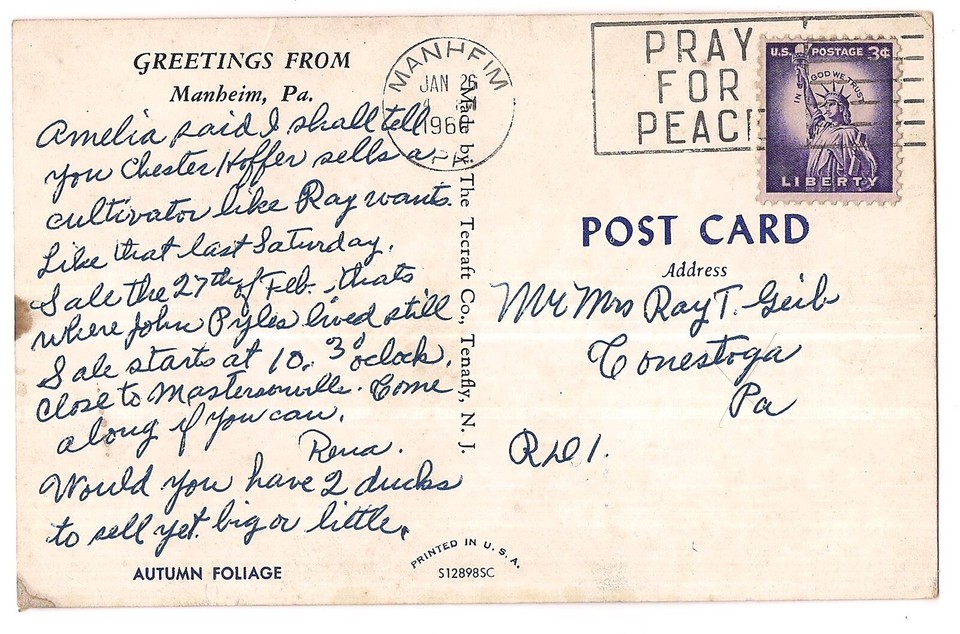 GREETINGS FROM
Manheim, Pa.
Amelia said I shall tell
you Chester Hoffer sells a
cultivator like Ray wants.
Like that last Saturday.
Sale the 27th of Feb., thats
where John Pyles lived still
Sale starts at 10.30 oclock.
Close to Mastersonville. Come
along if you can.
Rena.
Would you have 2 ducks
to sell yet. big or little.
AUTUMN FOLIAGE
MANHEIM
JAN 26
196
Made by The Tecraft Co., Tenafly, N. J.
PRAY
FOR
PEACE
U.S. POSTAGE 3¢
IN GOD WE TRUST
LIBERTY
POST CARD
Address
Mr Mrs Ray T. Geib
Conestoga
Pa
RD1.
PRINTED IN U. S. A.
S12898SC